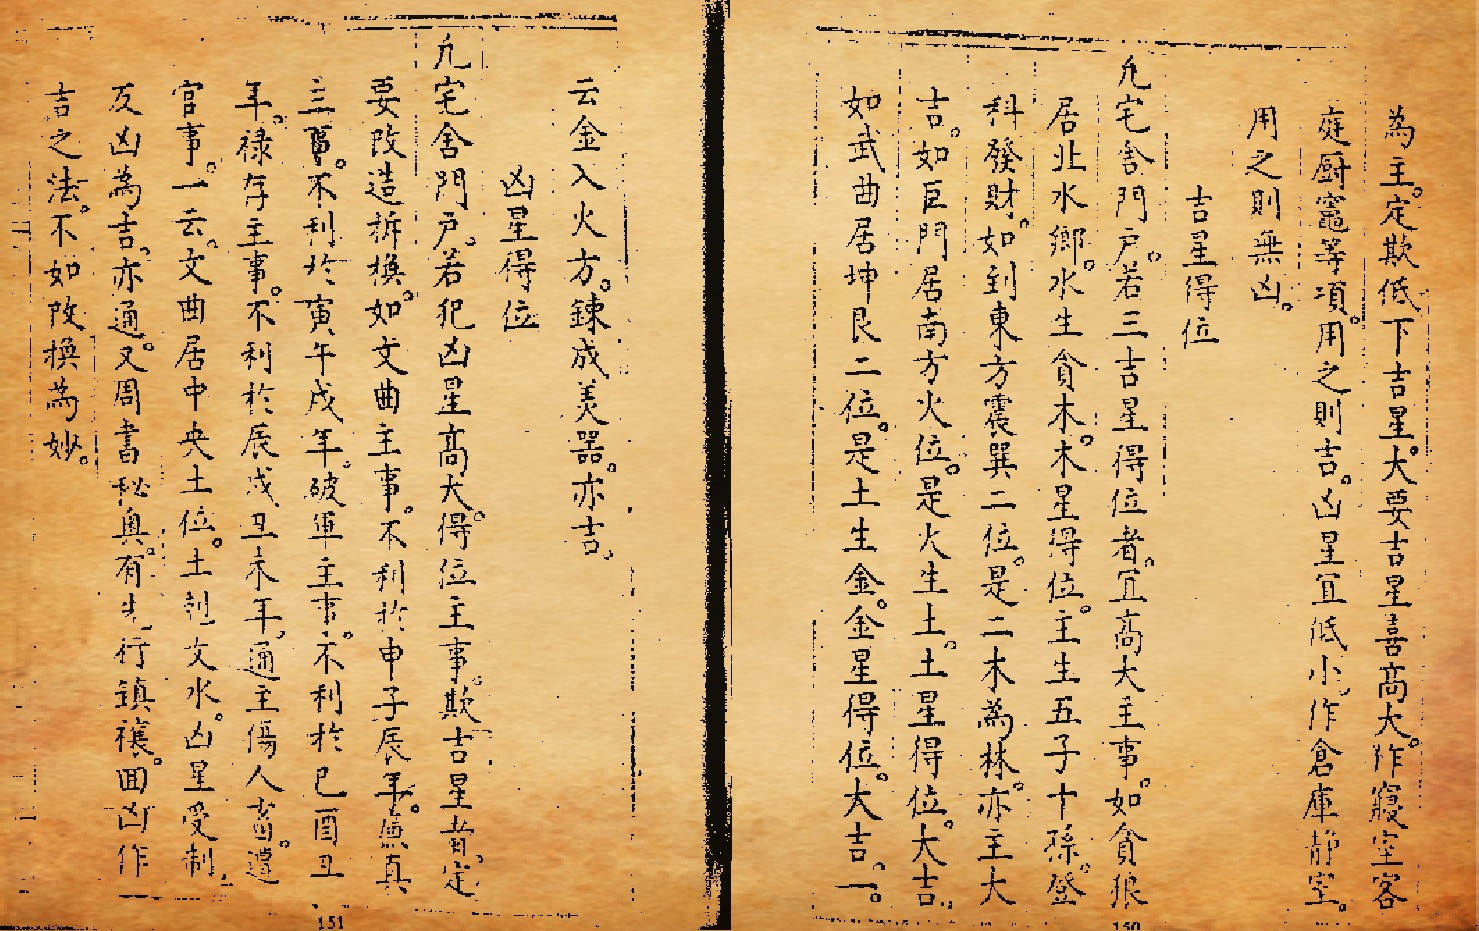 為主。定欺低下吉星大。要吉星喜高大。作寢室客
庭厨竈等項。用之則吉。凶星宜低小。作倉庫静室。
用之則無凶。
吉星得位
凢宅舍門户。若三吉星得位者。宜高大主事。如貪狼
居北水鄉。水生貪木。木星得位。主生五子十孫。登
科發財。如到東方震巽二位。是二木為林。亦主大
吉。如巨門居南方火位。是火生土。土星得位。大吉。
如武曲居坤艮二位。是土生金。金星得位。大吉。一。
150
云金入火方。鍊成美器。亦吉。
凶星得位
凢宅舍門户。若犯凶星高大。得位主事。欺吉星者。定
要改造拆換。如文曲主事。不利於申子辰年。無真
三事。不利於寅午戌年。破軍主事。不利於巳酉丑
年。禄存主事。不利於辰戌丑未年。通主傷人畜。遭
官事。一云。文曲居中央土位。土剋文水。凶星受制
反凶為吉。亦通。又周書秘奥。有先行鎮禳。回凶作
吉之法。不如改換為妙。
151